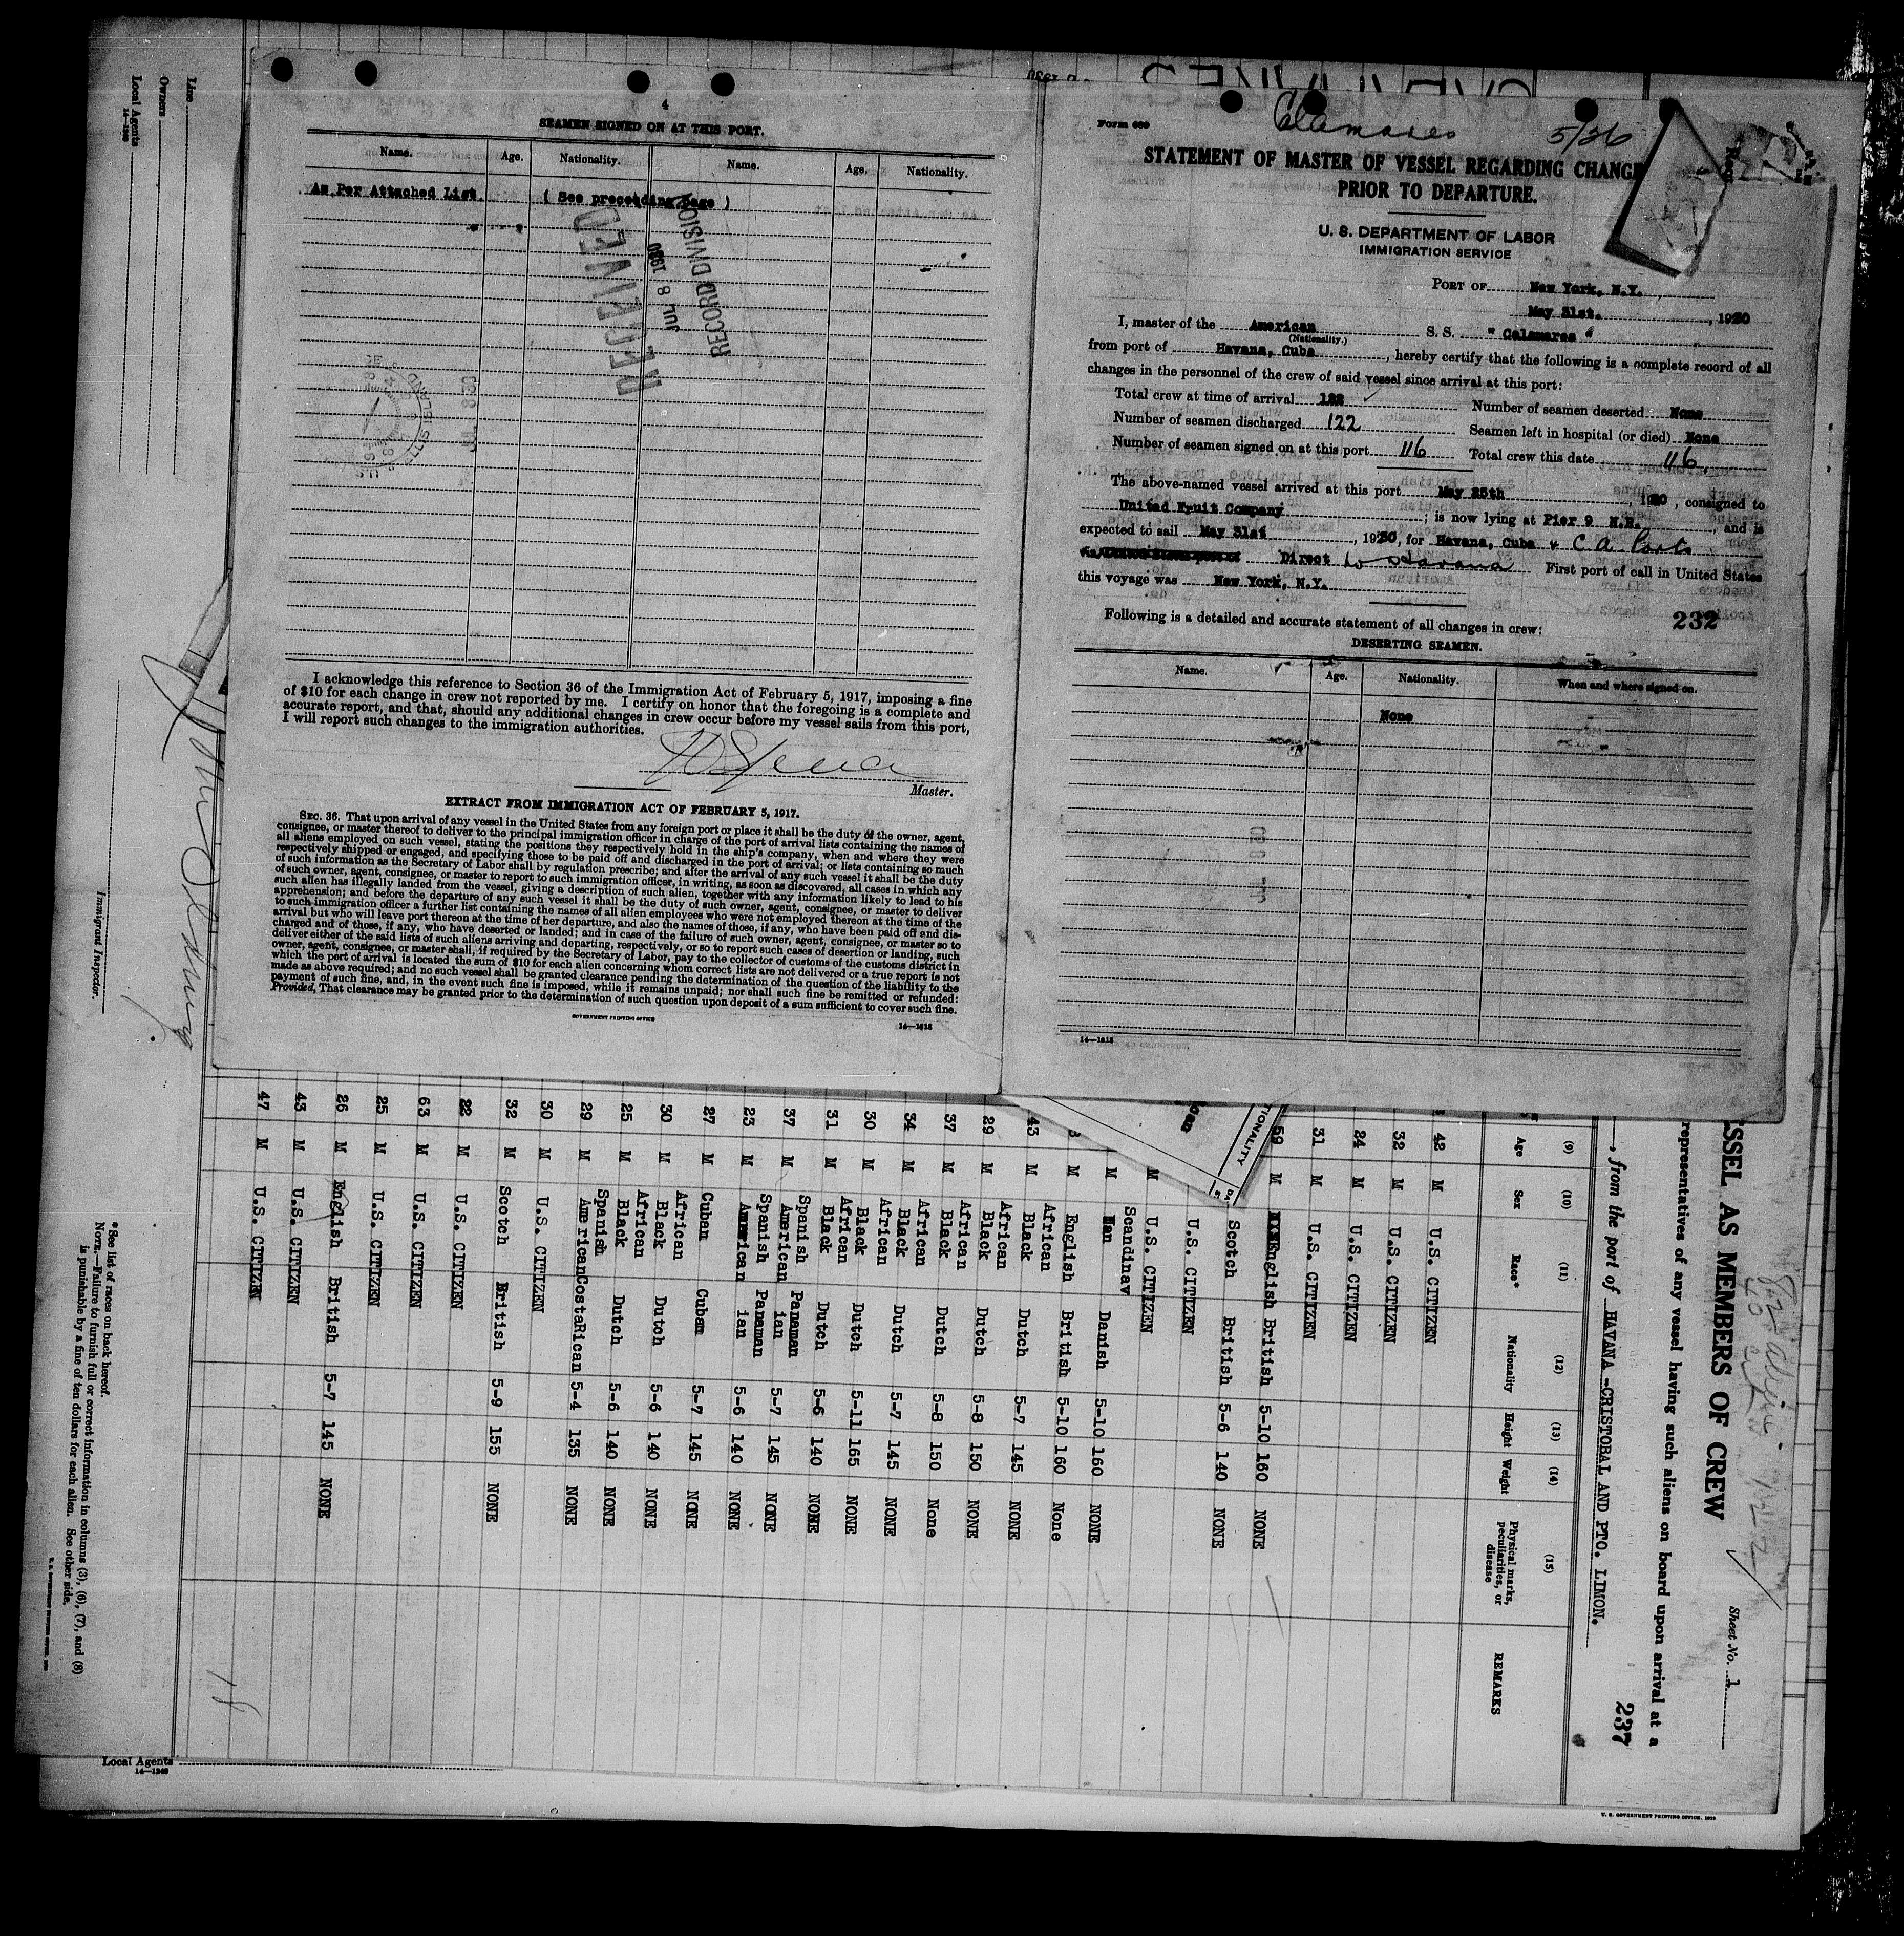 4
SEAMEN SIGNED ON AT THIS PORT.
Name. Age. Nationality. Name. Age. Nationality.
As Per Attached List. ( See preceeding page )
RECEIVED
JUL 8 1930
RECORD DIVISION
I acknowledge this reference to Section 36 of the Immigration Act of February 5, 1917, imposing a fine
of $10 for each change in crew not reported by me. I certify on honor that the foregoing is a complete and
accurate report, and that, should any additional changes in crew occur before my vessel sails from this port,
I will report such changes to the immigration authorities.
Master.
EXTRACT FROM IMMIGRATION ACT OF FEBRUARY 5, 1917.
SEC. 36. That upon arrival of any vessel in the United States from any foreign port or place it shall be the duty of the owner, agent,
consignee, or master thereof to deliver to the principal immigration officer in charge of the port of arrival lists containing the names of
all aliens employed on such vessel, stating the positions they respectively hold in the ship's company, when and where they were
respectively shipped or engaged, and specifying those to be paid off and discharged in the port of arrival; or lists containing so much
of such information as the Secretary of Labor shall by regulation prescribe; and after the arrival of any such vessel it shall be the duty
of such owner, agent, consignee, or master to report to such immigration officer, in writing, as soon as discovered, all cases in which any
such alien has illegally landed from the vessel, giving a description of such alien, together with any information likely to lead to his
apprehension; and before the departure of any such vessel it shall be the duty of such owner, agent, consignee, or master to deliver
to such immigration officer a further list containing the names of all alien employees who were not employed thereon at the time of the
arrival but who will leave port thereon at the time of her departure, and also the names of those, if any, who have been paid off and dis-
charged and of those, if any, who have deserted or landed; and in case of the failure of such owner, agent, consignee, or master so to
deliver either of the said lists of such aliens arriving and departing, respectively, or so to report such cases of desertion or landing, such
owner, agent, consignee, or master shall, if required by the Secretary of Labor, pay to the collector of customs of the customs district in
which the port of arrival is located the sum of $10 for each alien concerning whom correct lists are not delivered or a true report is not
made as above required; and no such vessel shall be granted clearance pending the determination of the question of the liability to the
payment of such fine, and, in the event such fine is imposed, while it remains unpaid; nor shall such fine be remitted or refunded:
Provided, That clearance may be granted prior to the determination of such question upon deposit of a sum sufficient to cover such fine.
GOVERNMENT PRINTING OFFICE 14—1618
Form 689 Calamares 5/26
STATEMENT OF MASTER OF VESSEL REGARDING CHANGE
PRIOR TO DEPARTURE.
U. S. DEPARTMENT OF LABOR
IMMIGRATION SERVICE
PORT OF New York, N.Y.
May 31st. , 1930
I, master of the American S. S. " Calamares "
(Nationality.)
from port of Havana, Cuba , hereby certify that the following is a complete record of all
changes in the personnel of the crew of said vessel since arrival at this port:
Total crew at time of arrival 122 Number of seamen deserted None
Number of seamen discharged 122 Seamen left in hospital (or died) None
Number of seamen signed on at this port 116 Total crew this date 116
The above-named vessel arrived at this port May 25th , 1930 , consigned to
United Fruit Company ; is now lying at Pier 9 N.R. , and is
expected to sail May 31st , 1930, for Havana, Cuba & C A Ports
via United States port of Direct to Havana First port of call in United States
this voyage was New York, N.Y.
Following is a detailed and accurate statement of all changes in crew: 232
DESERTING SEAMEN.
Name. Age. Nationality. When and where signed on.
None
14—1618
ESSEL AS MEMBERS OF CREW Sheet No. 1
122
representatives of any vessel having such aliens on board upon arrival at a
, from the port of HAVANA -CRISTOBAL AND PTO. LIMON. 237
(9) (10) (11) (12) (13) (14) (15)
Age Sex Race* Nationality Height Weight Physical marks, peculiarities, or disease REMARKS
42 M U.S. CITIZEN
32 M U.S. CITIZEN
24 M U.S. CITIZEN
31 M U.S. CITIZEN
59 M English British 5-10 160 NONE
Scotch British 5-6 140 NONE
U.S. CITIZEN
M U.S. CITIZEN
Scandinav
M ian Danish 5-10 160 NONE
3 M English British 5-10 160 None
African
43 M Black Dutch 5-7 145 NONE
African
29 M Black Dutch 5-8 150 NONE
African
37 M Black Dutch 5-8 150 None
African
34 M Black Dutch 5-7 145 NONE
African
30 M Black Dutch 5-11 165 NONE
African
31 M Black Dutch 5-6 140 NONE
Spanish
37 M American Panaman ian 5-7 145 NONE
Spanish
23 M American Panaman ian 5-6 140 NONE
27 M Cuban Cuban 5-7 145 NONE
African
30 M Black Dutch 5-6 140 NONE
African
25 M Black Dutch 5-6 140 NONE
Spanish
29 M American CostaRican 5-4 135 NONE
30 M U.S. CITIZEN
32 M Scotch British 5-9 155 NONE
22 M U.S. CITIZEN
63 M U.S. CITIZEN
25 M U.S. CITIZEN
26 M English British 5-7 145 NONE
43 M U.S. CITIZEN
47 M U.S. CITIZEN
*See list of races on back hereof.
NOTE.—Failure to furnish full or correct information in columns (3), (6), (7), and (8)
is punishable by a fine of ten dollars for each alien. See other side.
Immigrant Inspector.
Line
Owners
Local Agents
14—1240
Local Agents
14—1240
U. S. GOVERNMENT PRINTING OFFICE